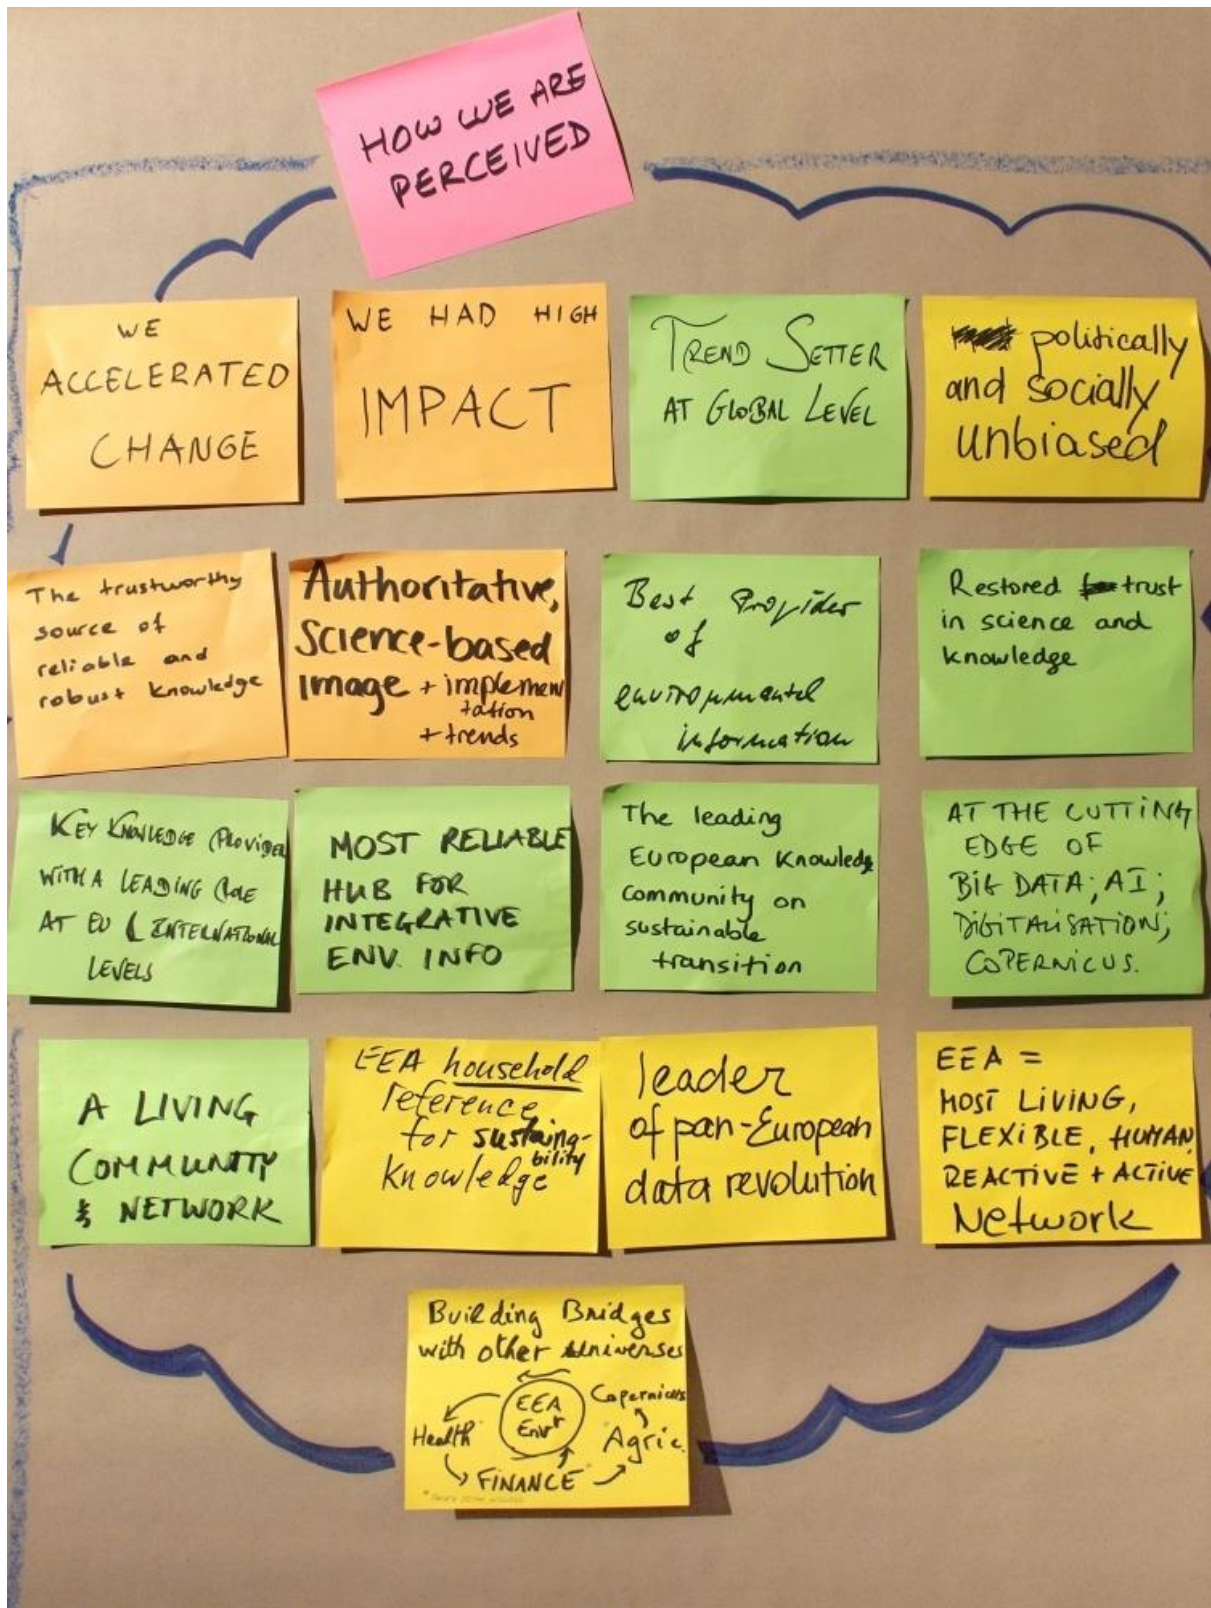 HOW WE ARE
PERCEIVED
WE
ACCELERATED
CHANGE
WE HAD HIGH
IMPACT
TREND SETTER
AT GLOBAL LEVEL
politically
and socially
unbiased
The trustworthy
source of
reliable and
robust knowledge
Authoritative,
Science-based
image + implemen
tation
+ trends
Best Provider
of
environmental
information
Restored trust
in science and
knowledge
KEY KNOWLEDGE PROVIDER
WITH A LEADING ROLE
AT EU & INTERNATIONAL
LEVELS
MOST RELIABLE
HUB FOR
INTEGRATIVE
ENV. INFO
The leading
European Knowledge
community on
sustainable
transition
AT THE CUTTING
EDGE OF
BIG DATA; AI;
DIGITALISATION;
COPERNICUS.
A LIVING
COMMUNITY
& NETWORK
EEA household
reference
for sustaina-
bility
knowledge
leader
of pan-European
data revolution
EEA =
MOST LIVING,
FLEXIBLE, HUMAN,
REACTIVE + ACTIVE
Network
Building Bridges
with other Universes
EEA
Envt
Copernicus
Health
Agric.
FINANCE